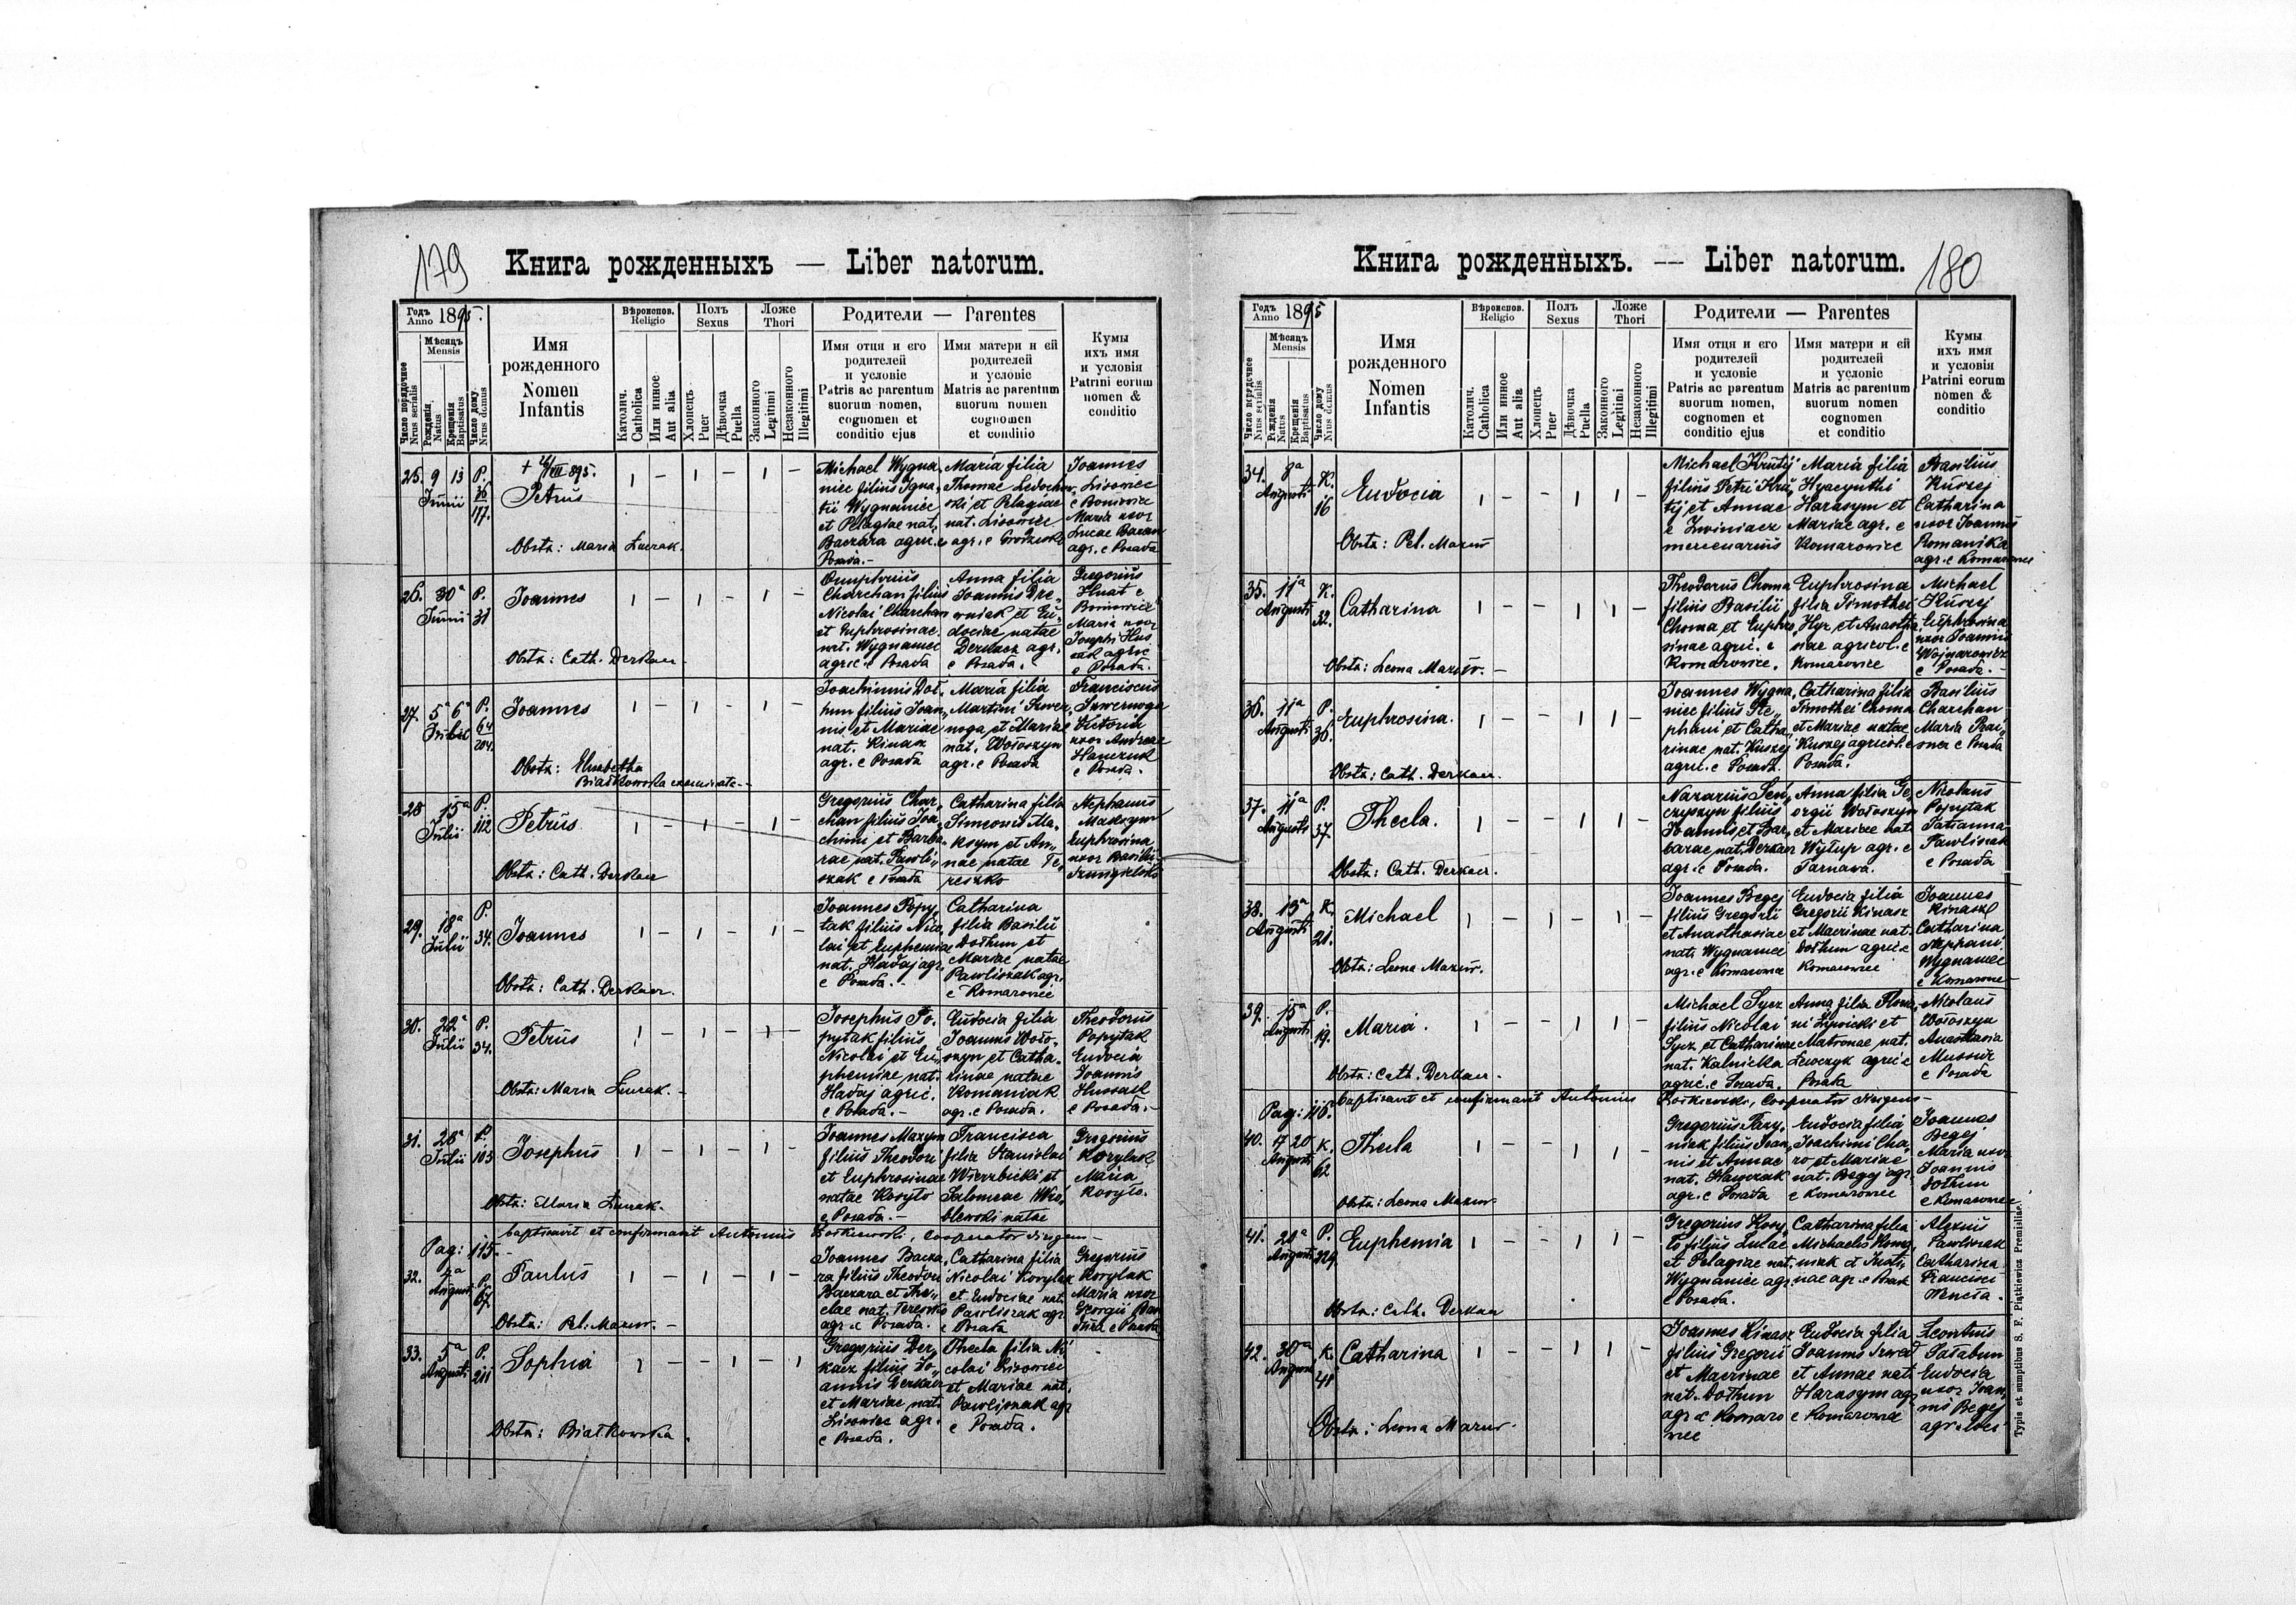 179
Книга рожденныхъ — Liber natorum.
Годъ Anno 1895.
Мѣсяцъ Mensis
Число порядочное Nrus serialis
Рожденія Natus
Крещенія Baptisatus
Число дому Nrus domus
Имя рожденного
Nomen Infantis
Вѣроиспов. Religio
Католич. Catholica
Или инное Aut alia
Полъ Sexus
Хлопець Puer
Дѣвочка Puella
Ложе Thori
Законного Legitimi
Незаконного Illegitimi
Родители — Parentes
Имя отця и его родителей и условіе
Patris ac parentum suorum nomen, cognomen et conditio ejus
Имя матери и єй родителей и условіе
Matris ac parentum suorum nomen cognomen et conditio
Кумы ихъ имя и условія
Patrini eorum nomen & conditio
25. 9 13 Junii P. 36 117.
Petrus
Obstx: Maria Łucrak.
Michael Wygna„
niec filius Igna„
tii Wygnaniec
et Pelagiae nat.
Baczara agric. e
Posada.-
Maria filia
Thomae Ledochow„
ski et Pelagiae
nat. Lisowiec
agr. e
Joannes
Lisowiec
e Boniowice
Maria uxor
Lucae Baran
agr. e Posada
26. 30a Junii P. 31
Joannes
Obstx: Cath. Derkacz.
Onuphrius
Charchan filius
Nicolai Charchan
et Euphrosinae
nat. Wygnaniec
agric. e Posada
Anna filia
Joannis Dre„
wniak et Eu„
dociae natae
Derkacz agr.
e Posada.
Gregorius
Hnat e
Boniowice
Maria uxor
Josephi Hus
sak agric
e Posada.
27. 5a 6a P. 64 204.
Joannes
Obstx: Elisabetha
Białkowska examinata.-
Joachimus Doł„
hun filius Joan„
nis et Mariae
nat. Kinasz
agr. e Posada
Maria filia
Martini Szwer„
noga et Mariae
nat. Wołoszyn
agr. e Posada
Franciscus
Szwernoga
Victoria
uxor Andreae
Hawczuk
e Posada.
28 15a Julii P. 112
Petrus
Obstx: Cath. Derkacz
Gregorius Char„
chan filius Joa„
chimi et Barba„
rae nat. Pawli„
szak e Posada
Catharina filia
Simeonis Ma„
ksym et An„
nae natae Te„
reszko
Stephanus
Maksym
Euphrosina
uxor Basilii
29. 18a Julii P. 34.
Joannes
Obstx: Cath. Derkacz.
Joannes Popy„
tak filius Nico„
lai et Euphemiae
nat. Hadaj agr.
e Posada.-
Catharina
filia Basilii
Dołhun et
Mariae natae
Pawliszak agr.
e Komarowice
30. 22a Julii P. 34.
Petrus
Obstx: Maria Łucrak.-
Josephus Po„
pytak filius
Nicolai et Eu„
phemiae nat.
Hadaj agric.
e Posada.-
Eudocia filia
Joannis Woło„
szyn et Catha„
rinae natae
Romaniak
agr. e Posada.
Theodorus
Popytak
Eudocia
Joannis
Hussak
e Posada.-
31. 28a Julii P. 103
Josephus
Obstx: Maria Łucrak.-
Joannes Maxym
filius Theodori
et Euphrosinae
natae Koryto
e Posada.-
Francisca
filia Stanislai
Wierzbicki et
Salomeae
natae
Gregorius
Korylak
Maria
Koryto.
baptisavit et confirmavit Antonius Borkowski, Cooperator dirigens-
Pag: 115.-
32. 4a Augusti P. 67.
Paulus
Obstx: Pel. Mazur.-
Joannes Bacza„
ra filius Theodori
Baczara et The„
clae nat. Tereszko
agr. e Posada.
Catharina filia
Nicolai Korylak
et Eudociae nat.
Pawliszak agr.
e Posada
Gregorius
Korylak
Maria uxor
Georgii
e Posada
33. 5a Augusti P. 211
Sophia
Obstx: Białkowska.
Gregorius Der„
kacz filius Jo„
annis Derkacz
et Mariae nat.
Lisowiec agr.
e Posada.
Thecla filia Ni
colai Lisowiec
et Mariae nat.
Pawliszak agr
e Posada.
180
Книга рожденныхъ. — Liber natorum.
Годъ Anno 1895
Мѣсяцъ Mensis
Число порядочное Nrus serialis
Рожденія Natus
Крещенія Baptisatus
Число дому Nrus domus
Имя рожденного
Nomen Infantis
Вѣроиспов. Religio
Католич. Catholica
Или инное Aut alia
Полъ Sexus
Хлопець Puer
Дѣвочка Puella
Ложе Thori
Законного Legitimi
Незаконного Illegitimi
Родители — Parentes
Имя отця и его родителей и условіе
Patris ac parentum suorum nomen, cognomen et conditio ejus
Имя матери и єй родителей и условіе
Matris ac parentum suorum nomen cognomen et conditio
Кумы ихъ имя и условія
Patrini eorum nomen & conditio
34. 8a Augusti K. 16
Eudocia
Obstx: Pel. Mazur
Michael Krutij
filius Petri Kru„
tij et Annae
e Zwiniacz
mercenarius
Maria filia
Hyacynthi
Harasym et
Mariae agr. e
Komarowice
Basilius
Kuszej
Catharina
uxor Joannis
Romanika
agr. e Komarowice
35. 11a Augusti K. 32.
Catharina
Obstx: Leona Mazur.-
Theodorus Choma
filius Basilii
Choma et Euphro„
sinae agric. e
Komarowice.
Euphrosina
filia Timothei
Hyr. et Anasta„
siae agricol. e
Komarowice
Michael
Kuszej
Euphrosina
uxor Joannis
Wojnarowicz
e Posada.-
36. 11a Augusti P. 36.
Euphrosina.
Obstx: Cath. Derkacz.
Joannes Wygna„
niec filius Ste„
phani et Catha„
rinae nat. Kuszej
agric. e Posada.
Catharina filia
Timothei Choma
et Mariae natae
Kuszej agricol. e
Posada.
Basilius
Charchan
Maria
e Posada
37. 11a Augusti P. 37.
Thecla.
Obstx: Cath. Derkacz.
Nazarius Sen„
czyszyn filius
Joannis et Bar„
barae nat. Derkacz
agr. e Posada.
Anna filia Ge„
orgii Wołoszyn
et Mariae nat.
Wytup agr. e
Tarnawa.
Nicolaus
Popytak
Tatianna
Pawliszak
e Posada
38. 13a Augusti K. 21.
Michael
Obstx: Leona Mazur.
Joannes Begej
filius Gregorii
et Anastasiae
nat. Wygnaniec
agr. e Komarowice
Eudocia filia
Gregorii Kinasz
et Macrinae nat.
Dołhun agric. e
Komarowice
Joannes
Kinasz
Catharina
Stephani
Wygnaniec
e Komarowice
39. 15a Augusti P. 19.
Maria.
Obstx: Cath. Derkacz.
Michael Sycz
filius Nicolai
Sycz et Catharinae
nat. Kalnicka
agric. e Posada.
Anna filia Floria„
ni Lipnicki et
Matronae nat.
Lewczyk agric. e
Posada
Nicolaus
Wołoszyn
Anastasia
e Posada
baptisavit et confirmavit Antonius Borkowski, Cooperator dirigens-
Pag: 116.
40. 17 20 Augusti K. 62
Thecla
Obstx: Leona Mazur.
Gregorius
filius Joan„
nis et Annae
nat. Hawczak
agr. e Posada
Eudocia filia
Joachimi Cha„
ro et Mariae
nat. Begej agr.
e Komarowice
Joannes
Begej
Maria uxor
Joannis
Dołhun
e Komarowice
41. 24a Augusti P. 129.
Euphemia
Obstx: Cath. Derkacz
Gregorius Kory„
to filius Lucae
et Pelagiae nat.
Wygnaniec agr.
e Posada.
Catharina filia
Michaelis Roma„
niak et Justi„
nae agr. e Posada
Alexius
Pawliszak
Catharina
Francisci
42. 30a Augusti K. 41
Catharina
Obstx: Leona Mazur.
Joannes Kinasz
filius Gregorii
et Macrinae
nat. Dołhun
agr. e Komaro
wice
Eudocia filia
Joannis Szwed
et Annae nat.
Harasym agr
e Komarowice
Leontius
Sałabun
Eudocia
uxor Joan„
nis Begej
agr. e loci
Typis et sumptibus S. F. Piątkiewicz Premisliae.